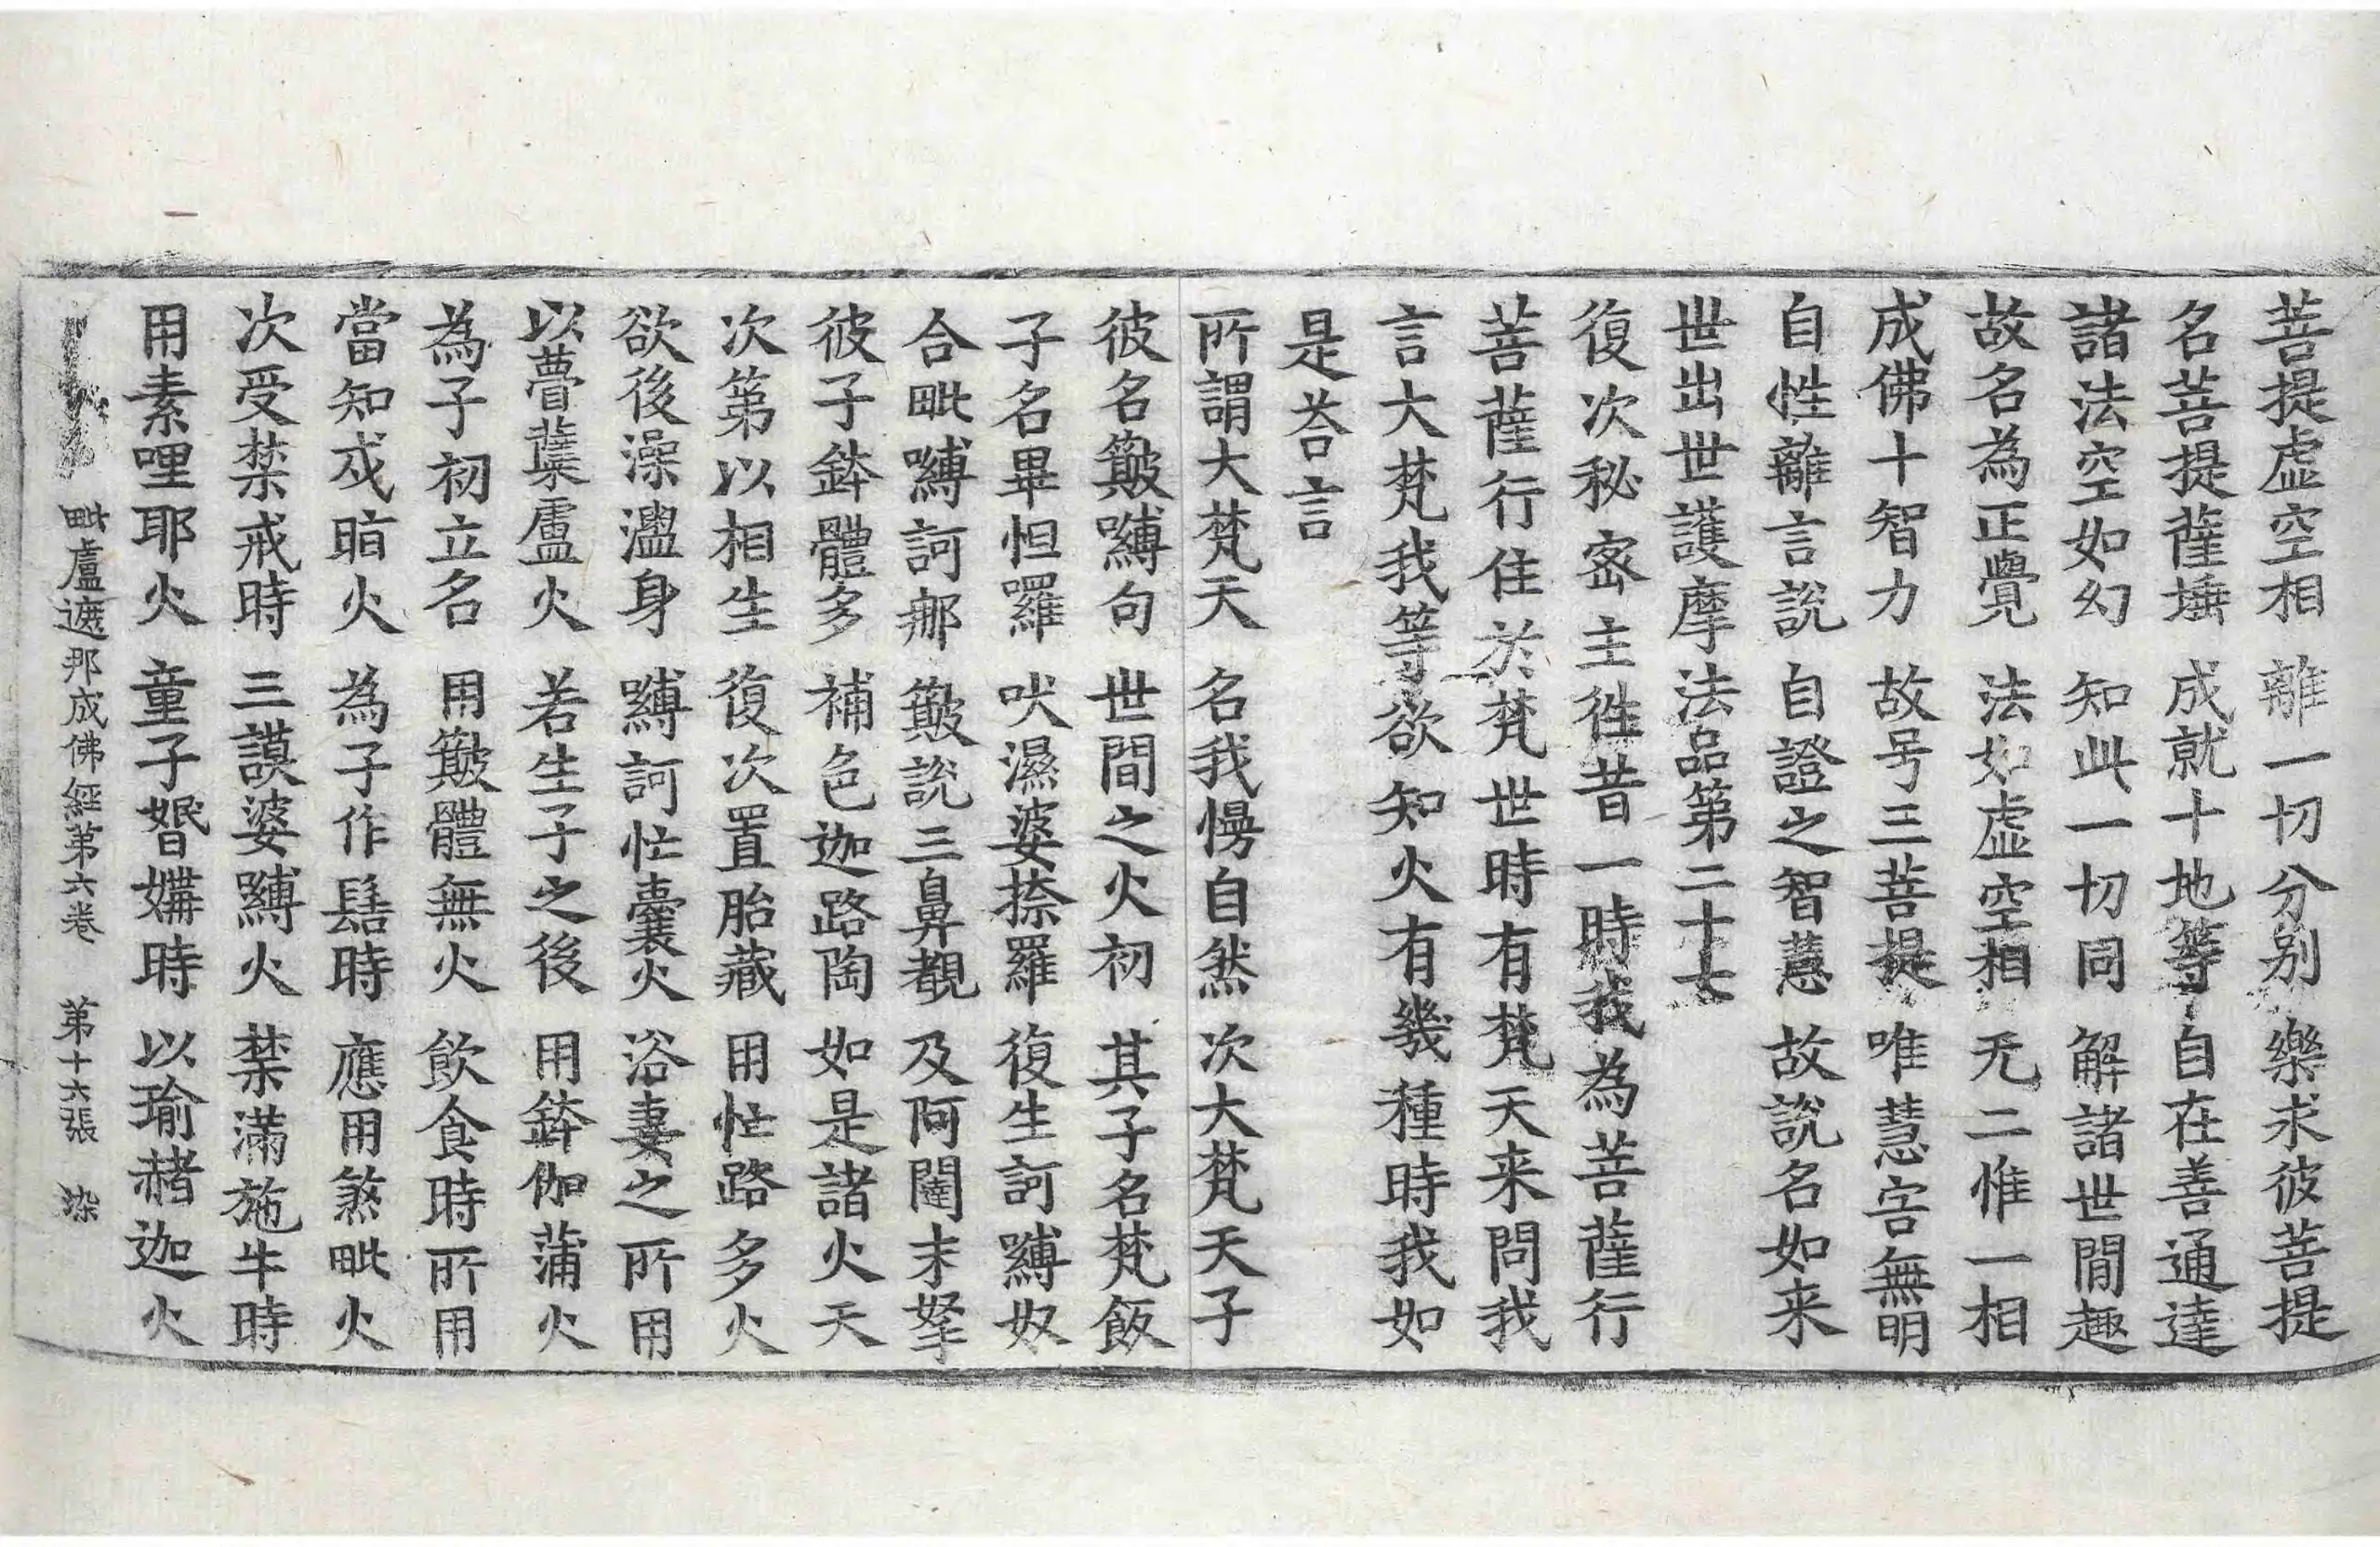 菩提虛空相　離一切分別　樂求彼菩提
名菩提薩埵　成就十地等　自在善通達
諸法空如幻　知此一切同　解諸世間趣
故名為正覺　法如虛空相　无二惟一相
成佛十智力　故号三菩提　唯慧害無明
自性離言說　自證之智慧　故說名如来
世出世護摩法品第二十七
復次秘密主徃昔一時我為菩薩行
菩薩行住於梵世時有梵天来問我
言大梵我等欲知火有幾種時我如
是荅言
所謂大梵天　名我慢自然　次大梵天子
彼名簸嚩句　世間之火初　其子名梵飯
子名畢怛囉　吠濕婆捺羅　復生訶嚩奴
合毗嚩訶那　簸說三鼻覩　及阿闥末拏
彼子鉢體多　補色迦路陶　如是諸火天
次第以相生　復次置胎藏　用忙路多火
欲後澡溫身　嚩訶忙囊火　浴妻之所用
以瞢蘖盧火　若生子之後　用鉢伽蒲火
為子初立名　用簸體無火　飲食時所用
當知戍脂火　為子作髻時　應用煞毗火
次受禁戒時　三謨婆嚩火　禁滿施牛時
用素哩耶火　童子婚媾時　以瑜赭迦火
毗盧遮那成佛經第六卷　第十六張　染